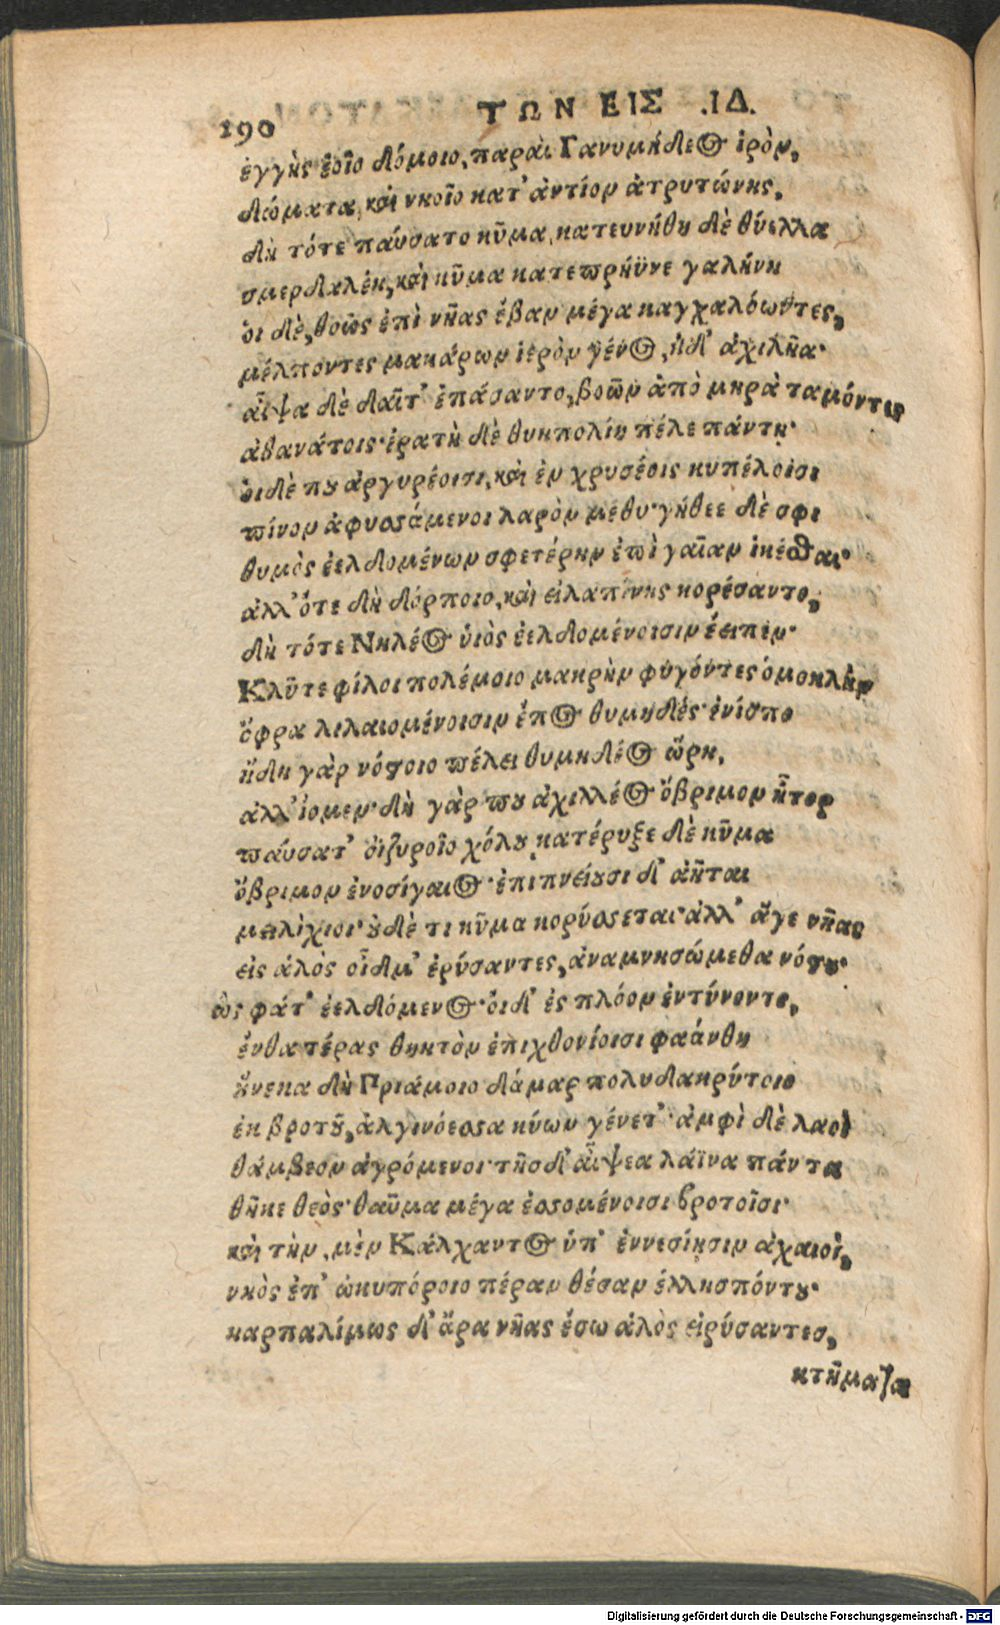 190 ΤΩΝ ΕΙΣ .ΙΔ.
ἐγγὺς ἑοῖο δόμοιο, παραὶ Γανυμήδεος ἱρὸν,
δώματα, καὶ νηοῖο κατ' ἀντίον ἀτρυτώνης.
δὴ τότε παύσατο κῦμα, κατευνήθη δὲ θύελλα
σμερδαλέη, καὶ κῦμα κατεπρήϋνε γαλήνη
οἱ δὲ, θοῶς ἐπὶ νῆας ἔβαν μέγα καγχαλόωντες,
μέλποντες μακάρων ἱερὸν γένος, ἠδ' ἀχιλῆα·
αἶψα δὲ δαῖτ' ἐπάσαντο, βοῶν ἀπὸ μηρὰ ταμόντες
ἀθανάτοις· ἐρατὴ δὲ θυηπολίη πέλε πάντη·
οἱ δέ που ἀργυρέοισι, καὶ ἐν χρυσέοις κυπέλοισι
πίνον ἀφυσσάμενοι λαρὸν μέθυ· γήθεε δὲ σφι
θυμὸς ἐελδομένων σφετέρην ἐπὶ γαῖαν ἱκέσθαι·
ἀλλ' ὅτε δὴ δόρποιο, καὶ εἰλαπίνης κορέσαντο,
δὴ τότε Νηλέος ὑιὸς ἐελδομένοισιν ἔειπεν·
Κλῦτε φίλοι πολέμοιο μακρὴν φυγόντες ὁμοκλὴν
ὄφρα λιλαιομένοισιν ἔπος θυμηδές· ἐνίσπω
ἤδη γὰρ νόστοιο πέλει θυμηδέος ὥρη,
ἀλλ' ἴομεν· δὴ γάρ που ἀχιλλέος ὄβριμον ἦτορ
παύσατ' ὀϊζυροῖο χόλου, κατέρυξε δὲ κῦμα
ὄβριμον ἐνοσίγαιος· ἐπιπνείουσι δ' ἀῆται
μειλίχιοι· οὐδέ τι κῦμα κορύσσεται· ἀλλ' ἄγε νῆας
εἰς ἁλὸς οἶδμ' ἐρύσαντες, ἀναμνησώμεθα νόστου·
ὣς φάτ' ἐελδόμενος· οἱ δ' ἐς πλόον ἐντύνοντο,
ἔνθα τέρας θηητὸν ἐπιχθονίοισι φαάνθη
ἥνεκα δὴ Πριάμοιο δάμαρ πολυδακρύτοιο
ἐκ βροτοῦ, ἀλγινόεσσα κύων γένετ'· ἀμφὶ δὲ λαοὶ
θάμβεον ἀγρόμενοι· τῆς δ' αἶψεα λάϊνα πάντα
θῆκε θεὸς· θαῦμα μέγα ἐσσομένοισι βροτοῖσι·
καὶ τὴν, μὲν Κάλχαντος ὑπ' ἐννεσίῃσιν ἀχαιοὶ,
νηὸς ἐπ' ὠκυπόροιο πέραν θέσαν ἑλλησπόντου·
καρπαλίμως δ' ἄρα νῆας ἔσω ἁλὸς εἰρύσαντες,
κτήματα
Digitalisierung gefördert durch die Deutsche Forschungsgemeinschaft - DFG